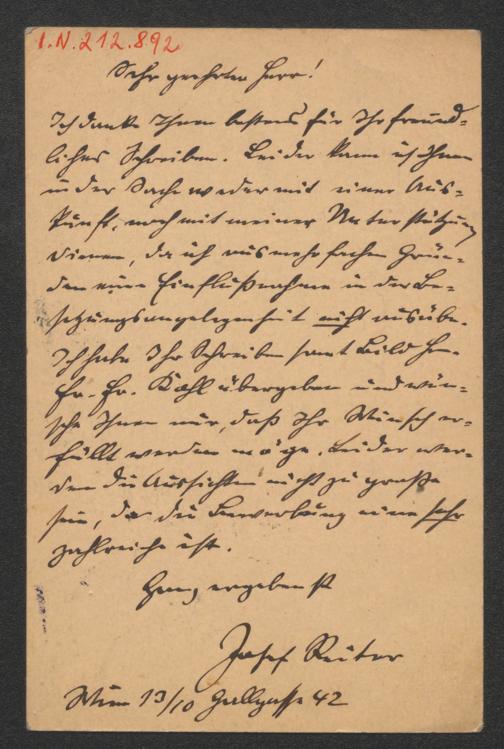 I.N. 212.892
Sehr geehrter Herr!
Ich danke Ihnen bestens für Ihr freund-
liches Schreiben. Leider kann ich Ihnen
in der Sache weder mit einer Aus-
kunft, noch mit meiner Unterstützung
dienen, da ich aus mehrfachen Grün-
den eine Einflußnahme in der Be-
setzungsangelegenheit nicht ausübe.
Ich habe Ihr Schreiben samt Bild H.
Fr. Fr. Kohl übergeben und wün-
sche Ihnen nur, daß Ihr Wunsch er-
füllt werden möge. Leider wer-
den die Aussichten nicht zu große
sein, da die Bewerbung eine sehr
zahlreiche ist.
Ganz ergebenst
Josef Reiter
Wien 13/10 Gallgasse 42